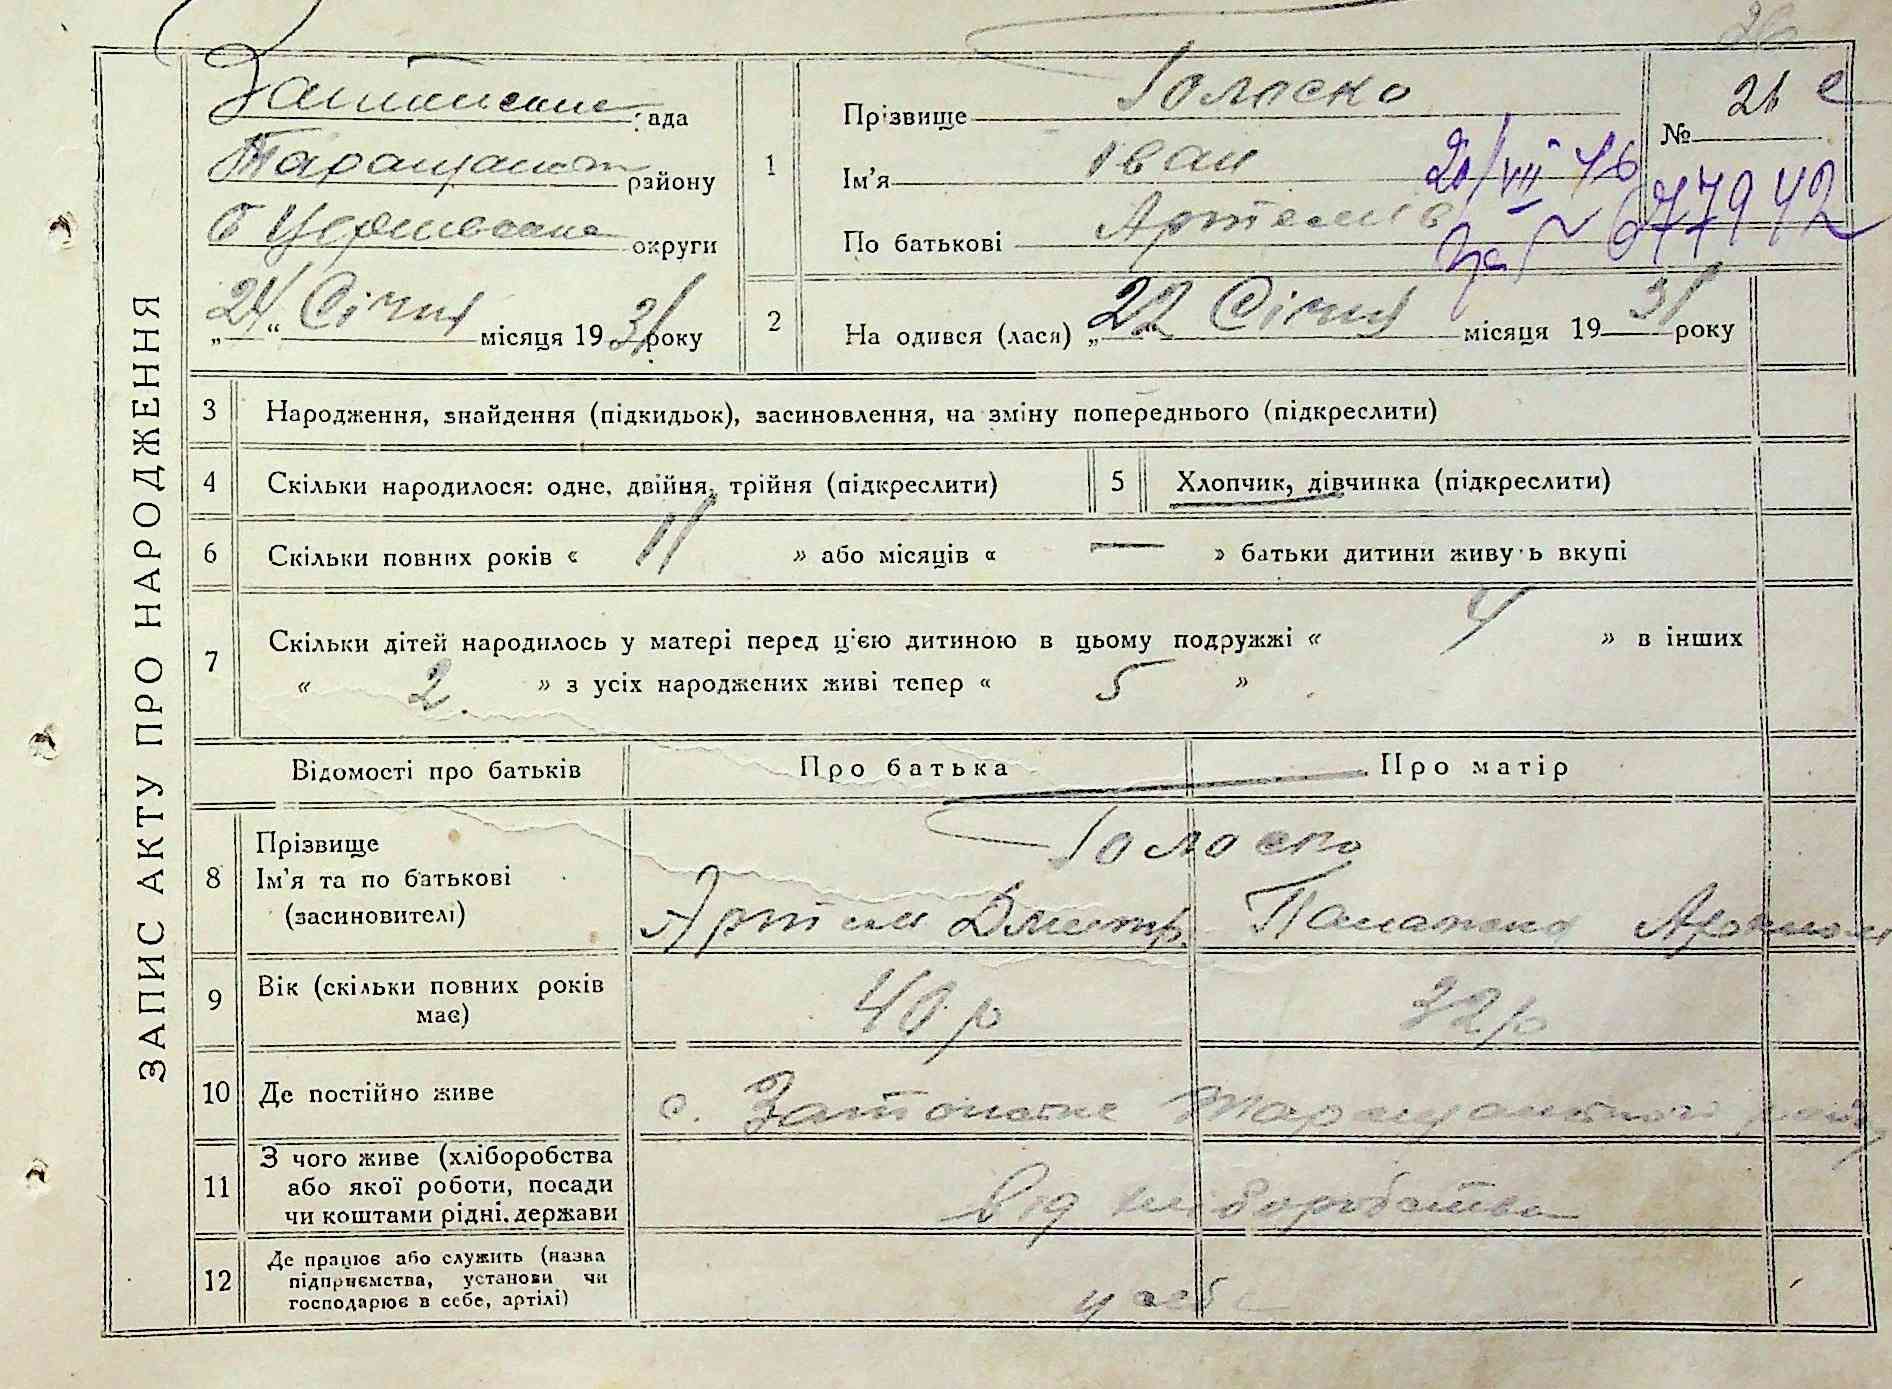 ЗАПИС АКТУ ПРО НАРОДЖЕННЯ
рада
району
округи
„24“ Січня місяця 1931 року
1
Прізвище Голоско
Ім'я Іван
По батькові Артемів
№ 21
20/VII 46
677942
2
Народився (лася) „22 Січня місяця 1931 року
3 Народження, знайдення (підкидьок), засиновлення, на зміну попереднього (підкреслити)
4 Скільки народилося: одне, двійня, трійня (підкреслити)
5 Хлопчик, дівчинка (підкреслити)
6 Скільки повних років « 11 » або місяців « — » батьки дитини живуть вкупі
7 Скільки дітей народилось у матері перед ц'єю дитиною в цьому подружжі « 4 » в інших
« 2. » з усіх народжених живі тепер « 5 »
Відомості про батьків Про батька Про матір
8 Прізвище
Ім'я та по батькові
(засиновителі)
Голоско
Артем Дмитр.
9 Вік (скільки повних років має)
40 р 32 р
10 Де постійно живе
с.
11 З чого живе (хліборобства
або якої роботи, посади
чи коштами рідні, держави
Від хліборобства
12 Де працює або служить (назва
підприємства, установи чи
господарює в себе, артілі)
у себе